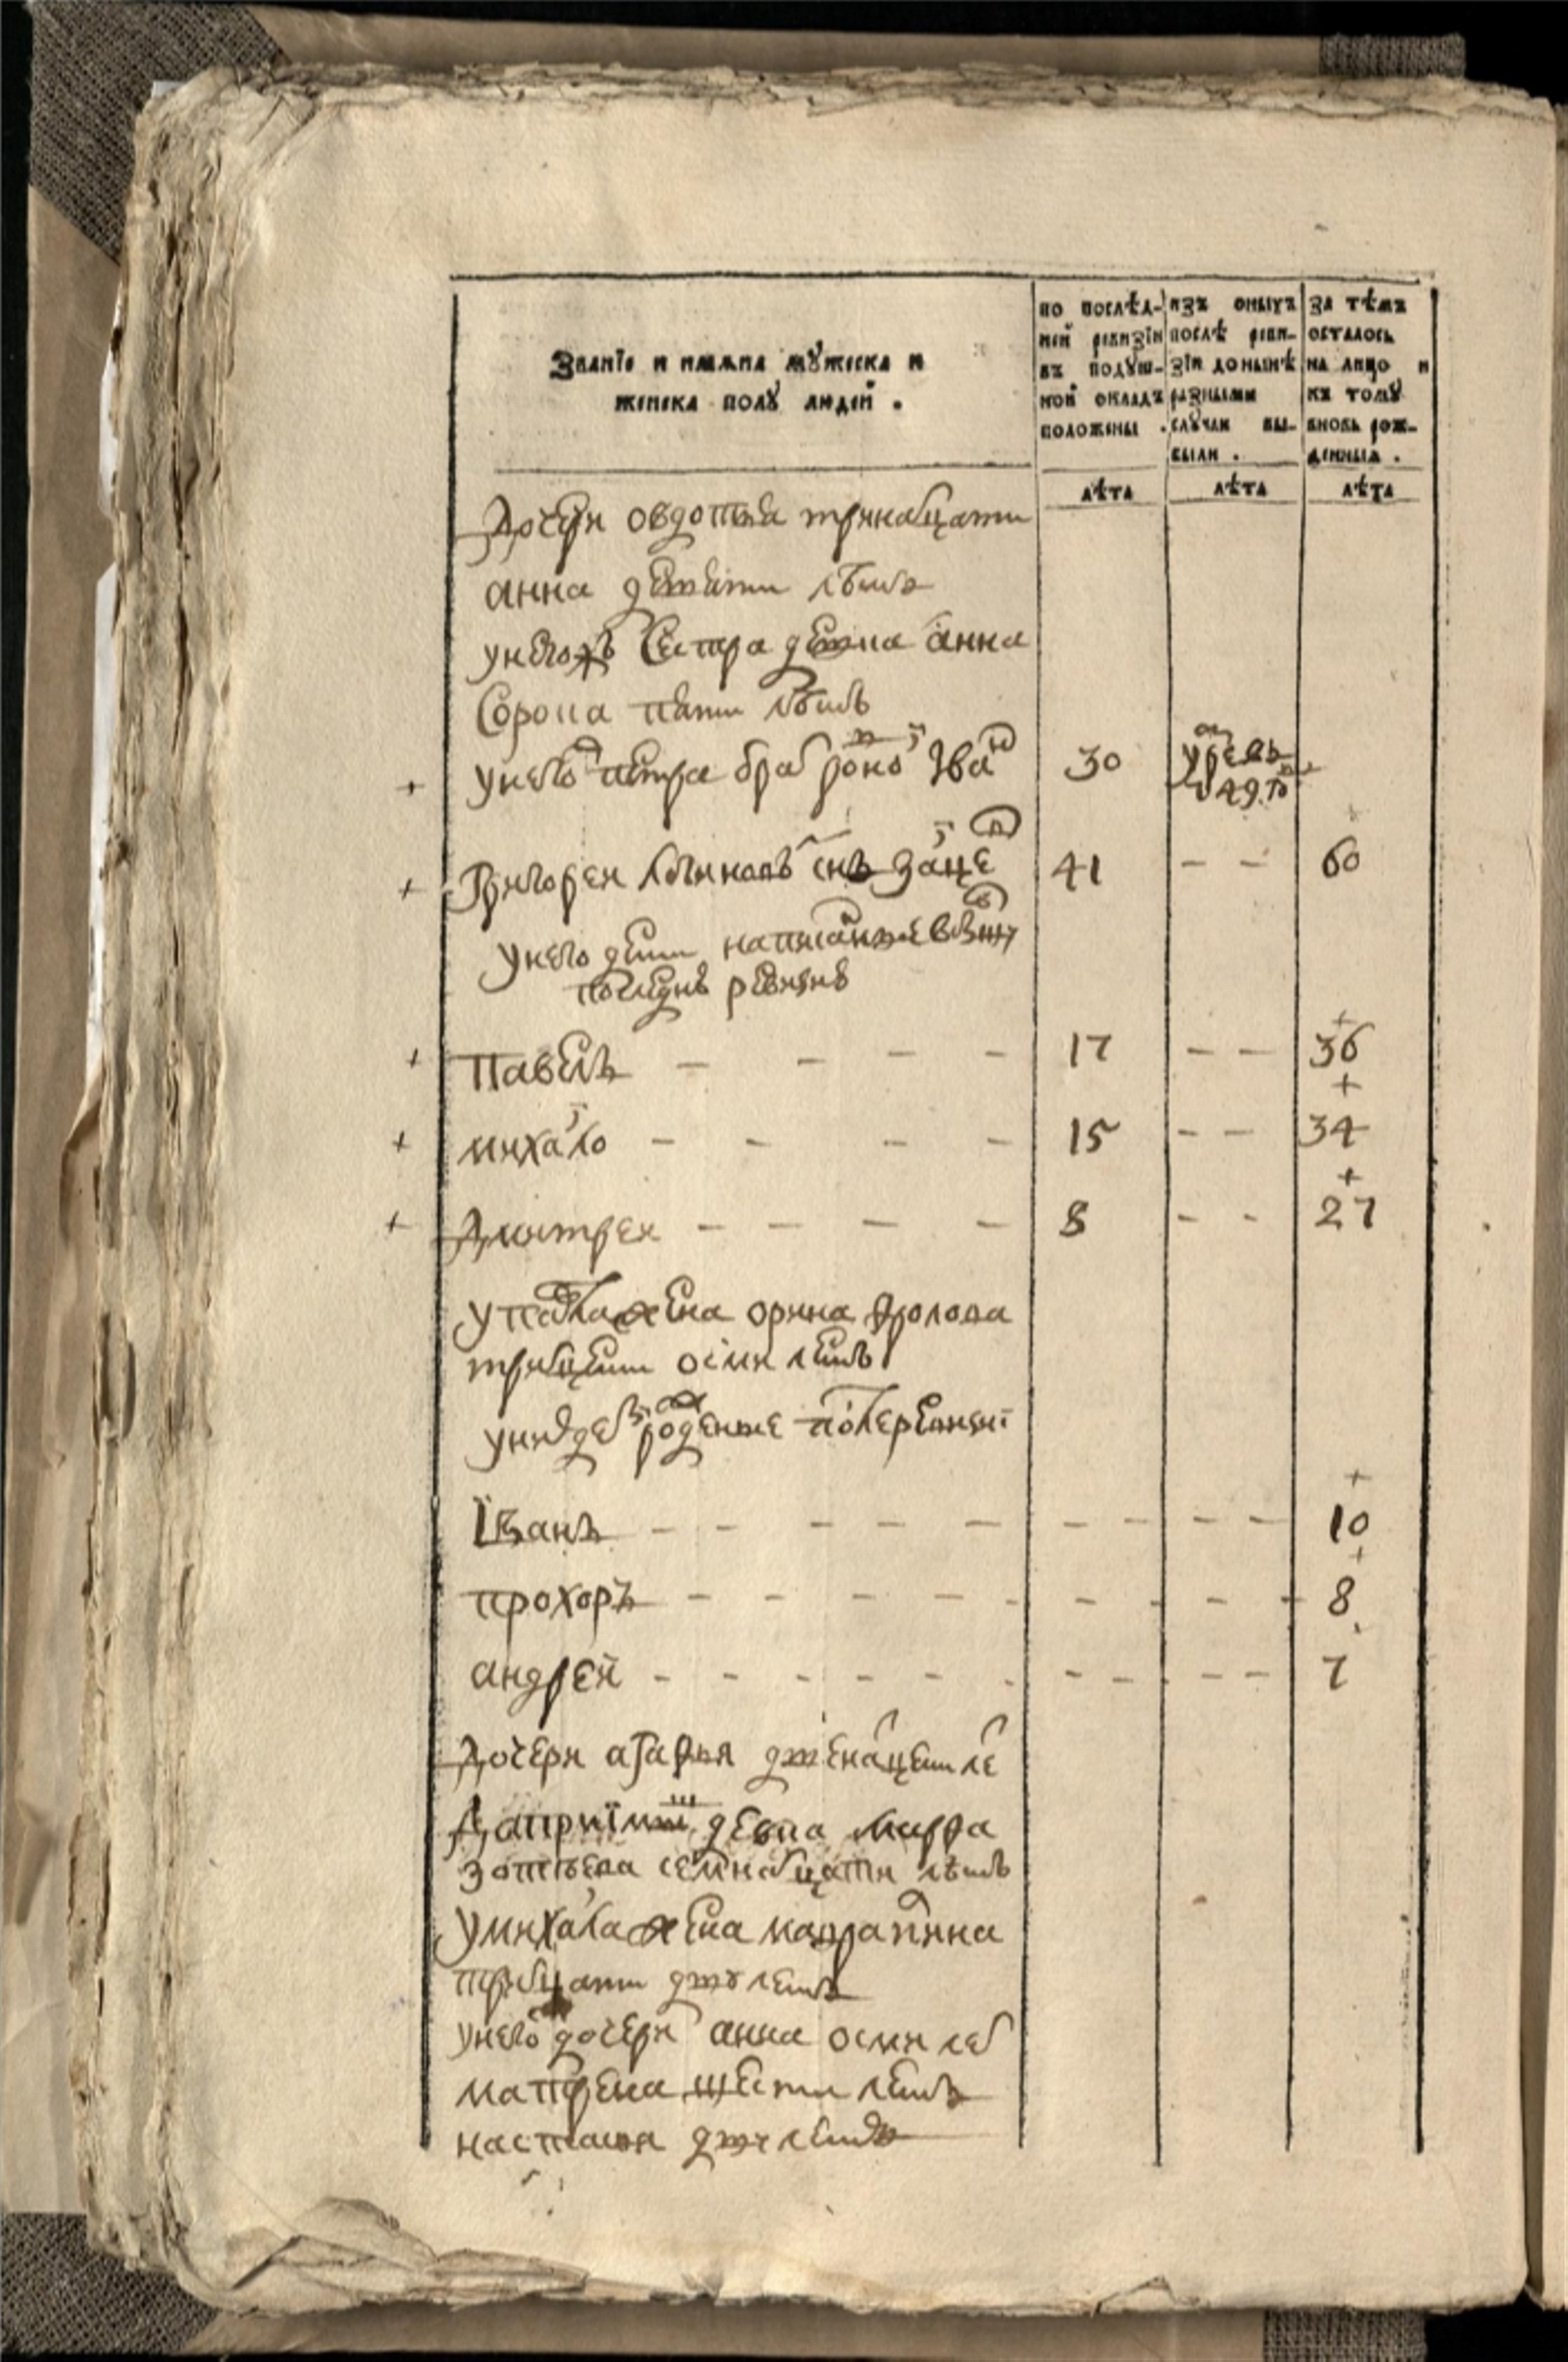 Званїе и имѧна мꙋжеска и
женска полꙋ людей .
по послѣд-
ней ревизїи
въ подꙋш-
ной окладъ
положены .
изъ оныхъ
послѣ реви-
зїи донынѣ
разными
слꙋчаи вы-
были .
за тѣмъ
осталось
на лицо и
къ томꙋ
вновь рож-
денныѧ .
лѣта лѣта лѣта
дочери овдотья тринатцати
анна девяти лѣтъ
у негожъ сестра девка анна
сорока пяти лѣтъ
+ у него петра брат родной Iван 30
+ Григореи сынъ заицев 41 - - 60
у него дети написанные
последнъ ревизиѣ
+ павелъ - - - - 17 - - 36
+ михайло - - - - 15 - - 34
+ дмитреи - - - - 8 - - 27
у павла жена орина фролова
тритцети осми летъ
у них дети рожденные после ревизиї
Їванъ - - - - - - - - - 10
прохоръ - - - - - - - - - 8
андрей - - - - - - - - - 7
дочери агафья двенацети ле
да приїмыш девка марфа
зотиева семнатцати лѣтъ
у михаила жена
тритцати двꙋ летъ
у него дочери анна осми лет
матрена шести летъ
настасья двꙋ летъ